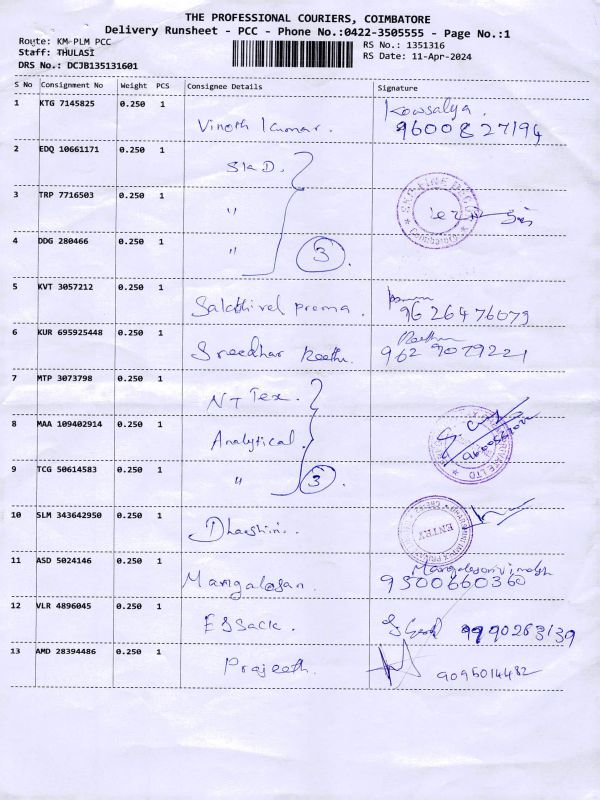 THE PROFESSIONAL COURIERS, COIMBATORE
Delivery Runsheet - PCC - Phone No.:0422-3505555 - Page No.:1
Route: KM-PLM PCC
RS No.: 1351316
Staff: THULASI
RS Date: 11-Apr-2024
DRS No.: DCJB135131601
S No Consignment No Weight PCS Consignee Details Signature
1 KTG 7145825 0.250 1 Vinoth Kumar. Kowsalya.
9600827194
2 EDQ 10661171 0.250 1
3 TRP 7716503 0.250 1 "
4 DDG 280466 0.250 1 " 3
Coimbatore
5 KVT 3057212 0.250 1 Sakthivel prema. 9626476079
6 KUR 695925448 0.250 1 Sreedhar Reethu. Reethu
9629079221
7 MTP 3073798 0.250 1 NT Tex.
8 MAA 109402914 0.250 1 Analytical.
9 TCG 50614583 0.250 1 " 3
10 SLM 343642950 0.250 1 Dharshini. ENTRY
11 ASD 5024146 0.250 1 Mangalesan.
12 VLR 4896045 0.250 1 ESSack.
13 AMD 28394486 0.250 1 Prajeeth. 9095014482